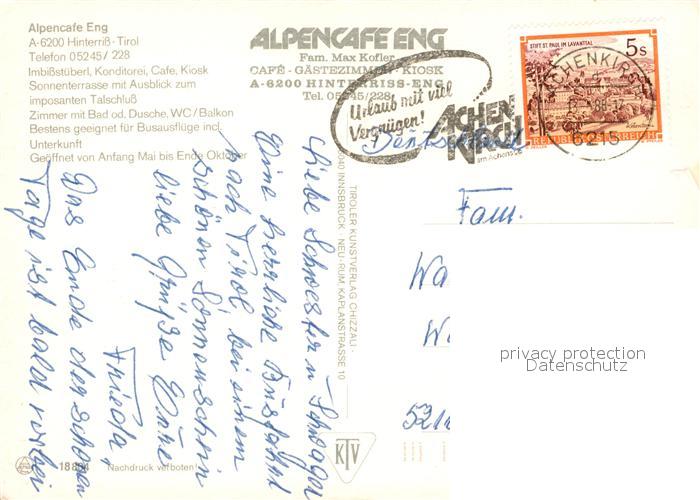 Alpencafe Eng
A-6200 Hinterriß - Tirol
Telefon 05245/ 228
Imbißstüberl, Konditorei, Cafe, Kiosk
Sonnenterrasse mit Ausblick zum
imposanten Talschluß
Zimmer mit Bad od. Dusche, WC / Balkon
Bestens geeignet für Busausflüge incl.
Unterkunft
Geöffnet von Anfang Mai bis Ende Oktober
ALPENCAFE ENG
Fam. Max Kofler
CAFÉ - GÄSTEZIMMER - KIOSK
A-6200 HINTERRISS-ENG
Tel. 05245/228
Urlaub mit viel
Vergnügen!
ACHEN
am Achensee
STIFT ST. PAUL IM LAVANTTAL
5s
REPUBLIK ÖSTERREICH
ACHENKIRCH
6215
Liebe Schwester u. Schwager
Eine herrliche Busfahrt
nach Tirol, bei einem
schönen Sonnenschein
liebe Grüße Eure
Frieda,
Das Ende der schönen
Tage ist bald vorbei
TIROLER KUNSTVERLAG CHIZZALI ·
6040 INNSBRUCK · NEU-RUM, KAPLANSTRASSE 10
Deutschland
Fam.
Wa
W
52
privacy protection
Datenschutz
KTV
Nachdruck verboten!